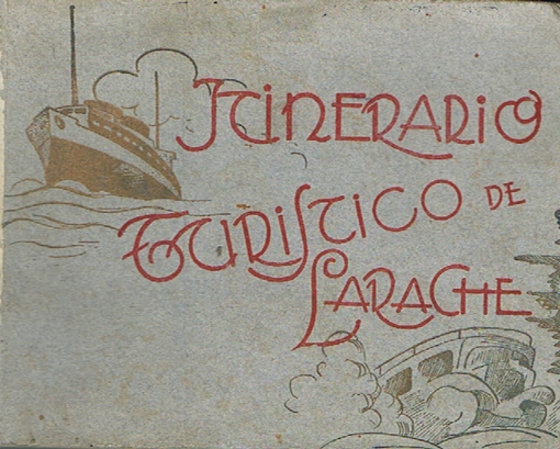 Itinerario
Turistico de
Larache